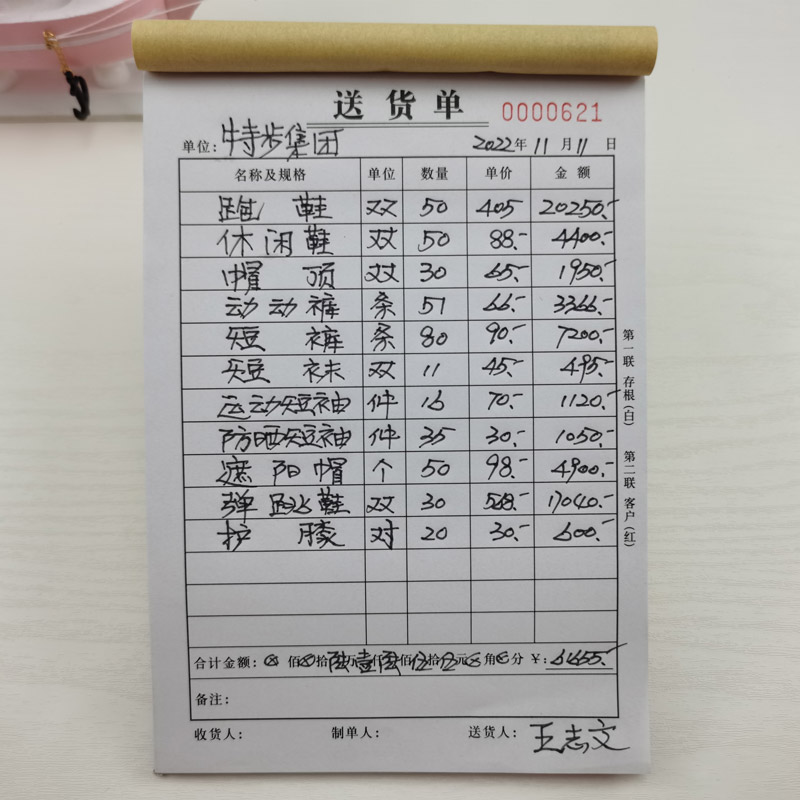 送货单 0000621
单位：特步集团 2022年11月11日
名称及规格 单位 数量 单价 金额
跑鞋 双 50 405 20250.-
休闲鞋 双 50 88.- 4400.-
帽顶 双 30 65.- 1950.-
动动裤 条 51 66.- 3366.-
短裤 条 80 90.- 7200.-
短袜 双 11 45.- 495.-
运动短袖 件 16 70.- 1120.-
防晒短袖 件 35 30.- 1050.-
遮阳帽 个 50 98.- 4900.-
弹跳鞋 双 30 568.- 17040.-
护膝 对 20 30.- 600.-
合计金额：⊗佰⊗拾陆万壹仟陆佰伍拾伍元⊗角⊗分 ￥：61655.-
备注：
收货人： 制单人： 送货人：王志文
第一联 存根（白） 第二联 客户（红）